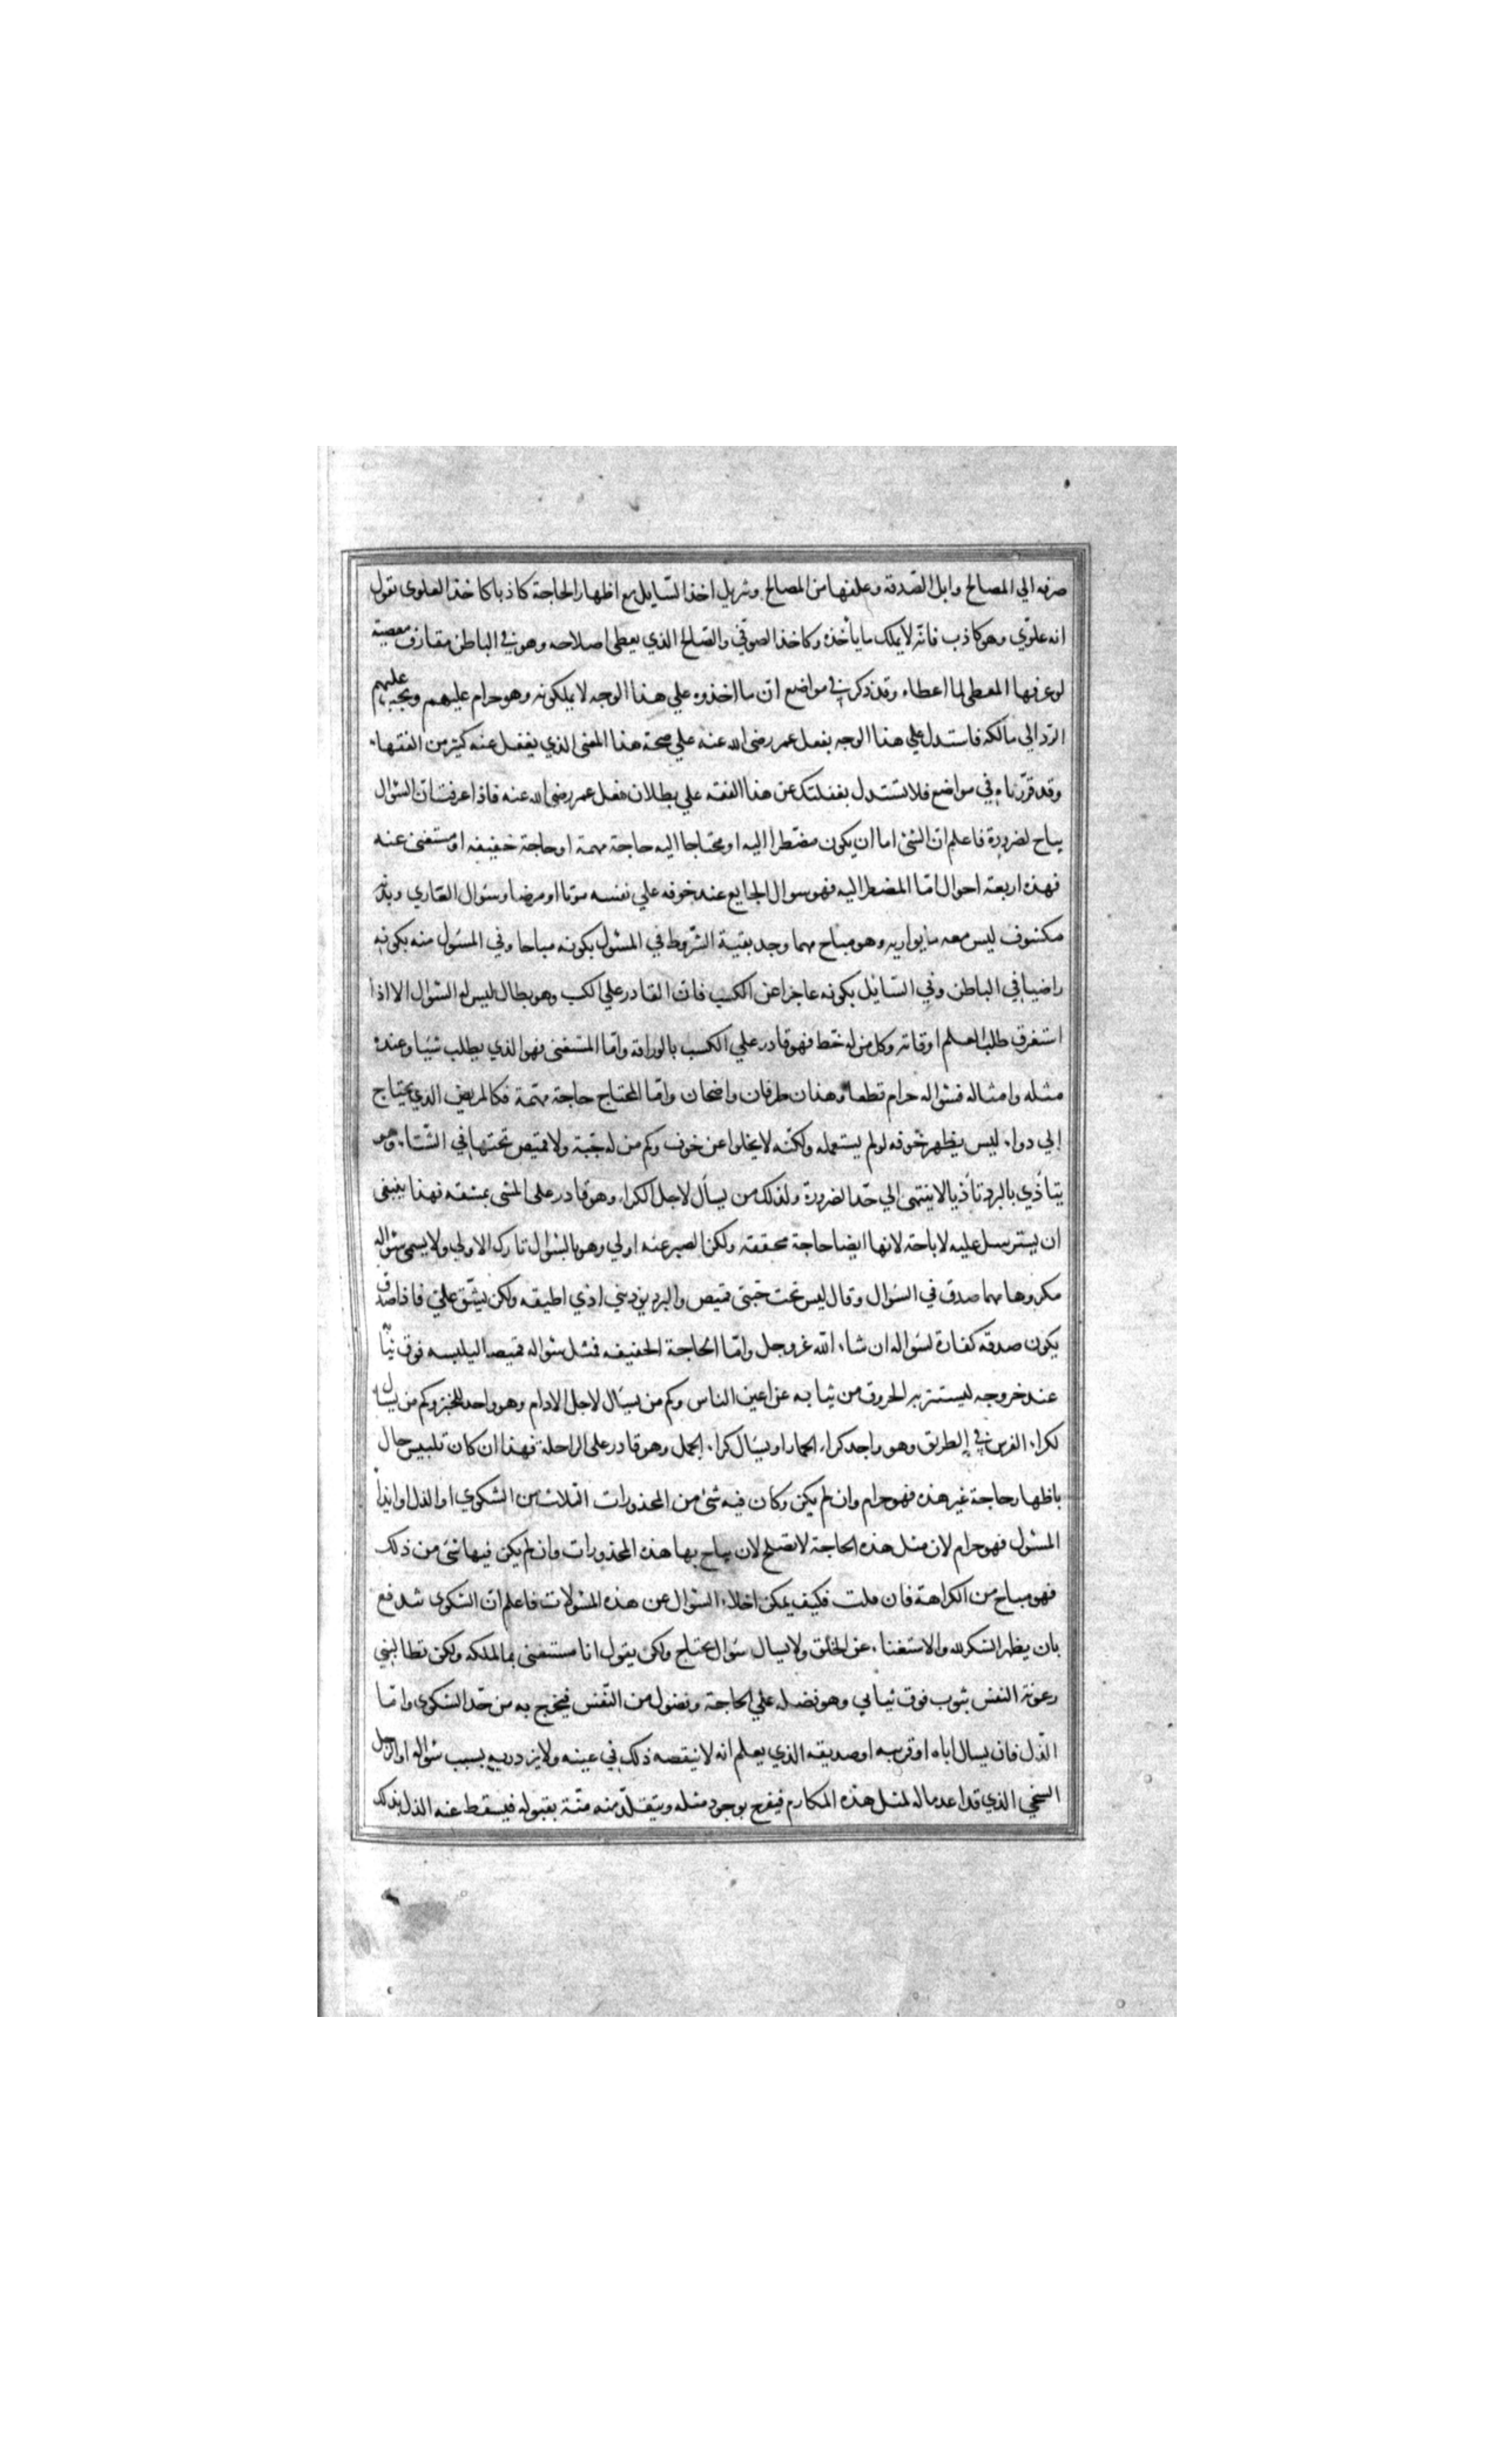 صرفه الي المصالح وابل الصّدقة وعلفها من المصالح وتنزيل اخذ السّايل مع اظهار الحاجة كاذبا كاخذ العلوى بقول
انه علويّ وهو كاذب فانّه لا يملك ما يأخذه وكاخذ الصوفيّ والصّالح الذي يعطى اصلاحه وهو في الباطن مقارف معصية
لو عرفها المعطى لما اعطاه وقد ذكر في مواضع انّ ما اخذوه علي هذا الوجه لا يملكونه وهو حرام عليهم ويجب عليهم
الرّد الي مالكه فاستدل علي هذا الوجه بفعل عمر رضي الله عنه علي صحة هذا المعنى الذي يغفل عنه كثير من الفقهاء
وقد قرّرناه في مواضع فلا تستدل بغفلتك عن هذا الفقه علي بطلان فعل عمر رضي الله عنه فاذا عرفت انّ السّؤال
يباح لضرورة فاعلم انّ الشئ اما ان يكون مضطرا اليه او محتاجا اليه حاجة مهمة او حاجة خفيفه او مستغنى عنه
فهذه اربعة احوال امّا المضطر اليه فهو سوال الجايع عند خوفه علي نفسه موتا او مرضا وسئوال العاري وبدنه
مكشوف ليس معه ما يواريه وهو مباح مهما وجد بقية الشّروط في المسئول بكونه مباحا وفي المسئول منه بكونه
راضيا في الباطن وفي السّايل بكونه عاجزا عن الكسب فانّ القادر علي الكسب وهو بطال ليس له السّؤال الا اذا
استغرق طلب العلم اوقاته وكل من له خّط فهو قادر علي الكسب بالوراقة وامّا المستغنى فهو الذي يطلب شيا وعنده
مثله وامثاله فسئواله حرام قطعا وهذان طرفان واضحان وامّا المحتاج حاجة مهمّة فكالمريض الذي يحتاج
إلي دواء ليس يظهر خوفه لو لم يستعمله ولكنّه لا يخلوا عن خوف وكم من له جّبة ولا قميص تحتها في الشّتاء وهو
يتأذي بالبرد تأذيا لا ينتهى الي حّد الضرورة ولذلك من يسأل لاجل الكراء وهو قادر على المشى بمشقة فهذا ينبغى
ان يسترسل عليه لاباحة لانها ايضا حاجة محققة ولكن الصبر عنه اولي وهو بالسّؤال تارك الاولي ولا يسمى سئواله
مكروها مهما صدق في السئوال وقال ليس تحت جبتى قميص والبرد يؤذيني اذي اطيقه ولكن يشّق عليّ فاذا صدق
يكون صدقه كفارة لسئواله ان شاء الله عزوجل وامّا الحاجة الخفيفه فمثل سئواله قميصا ليلبسه فوق ثيابه
عند خروجه ليستتر به الخروق من ثيابه عن اعين الناس وكم من يسئال لاجل الادام وهو واجد للخبز وكم من يسال
لكراء الفرس في الطريق وهو واجد كراء الحمار او يسئال كراء الجمل وهو قادر على الراحلة فهذا ان كان تلبيس حال
باظهار حاجة غير هذه فهو حرام وان لم يكن وكان فيه شئ من المحذورات الثلاث من الشكوي او الذل او ايذاء
المسئول فهو حرام لان مثل هذه الحاجة لا تصلح لان يباح بها هذه المحذورات وان لم يكن فيها شئ من ذلك
فهو مباح من الكراهة فان قلت فكيف يمكن اخلاء السّؤال عن هذه المسئولات فاعلم انّ الشكوى تندفع
بان يظهر الشكر لله والاستغناء عن الخلق ولا يسال سئوال محتاج ولكن يقول انا مستغنى بما املكه ولكن تطالبني
رعونة النفس بثوب فوق ثيابي وهو فضله علي الحاجة وفضول من النّفس فيخرج به من حّد الشكوى وامّا
الذّل فان يسال اباه او قريبه او صديقه الذي يعلم انه لا ينقصه ذلك في عينه ولا يزدريه بسبب سئواله او الرجل
السخي الذي قد اعد ماله لمثل هذه المكارم فيفرح بوجود مثله ويتقلّد منه منّة بقبوله فيسقط عنه الذل بذلك